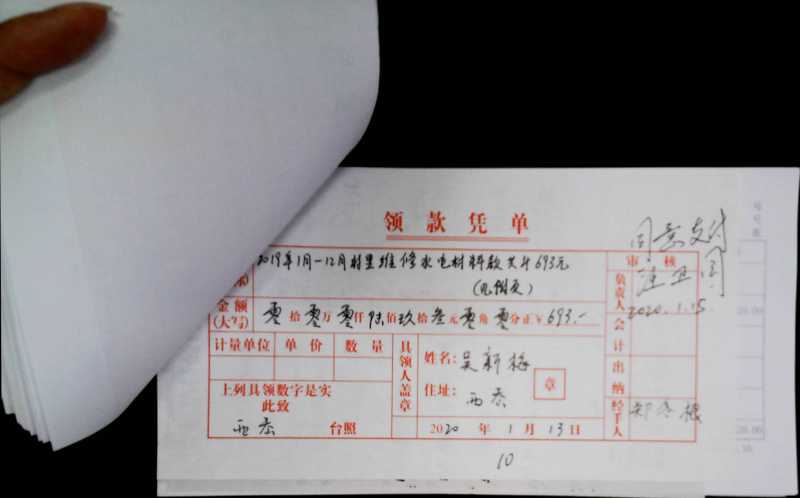 领款凭单
同意支付
2019年1月-12月村里维修水电材料款共计693元
审核
负责人
2020.1.15
金额
(大写)
零拾零万零仟陆佰玖拾叁元零角零分正￥693.-
会计
计量单位 单价 数量
具领人盖章
姓名：吴新梅
章
住址：西岙
出纳
上列具领数字是实
此致
西岙 台照
2020年1月13日
经手人
10